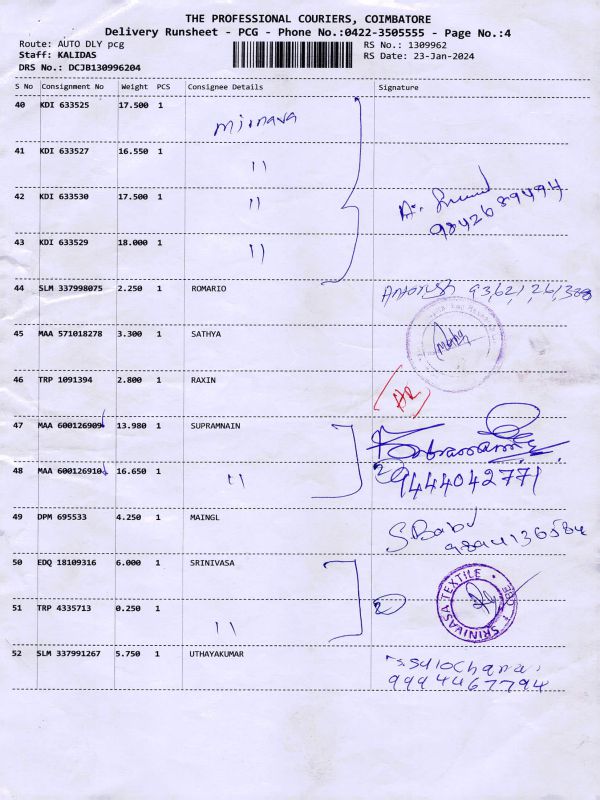 THE PROFESSIONAL COURIERS, COIMBATORE
Delivery Runsheet - PCG - Phone No.:0422-3505555 - Page No.:4
Route: AUTO DLY pcg
RS No.: 1309962
Staff: KALIDAS
RS Date: 23-Jan-2024
DRS No.: DCJB130996204
S No Consignment No Weight PCS Consignee Details Signature
40 KDI 633525 17.500 1
41 KDI 633527 16.550 1 11
42 KDI 633530 17.500 1 11
9842689494
43 KDI 633529 18.000 1 11
44 SLM 337998075 2.250 1 ROMARIO
45 MAA 571018278 3.300 1 SATHYA
46 TRP 1091394 2.800 1 RAXIN
47 MAA 600126909 13.980 1 SUPRAMNAIN
48 MAA 600126910 16.650 1 11
2 9444042771
49 DPM 695533 4.250 1 MAINGL S. Babu
9894136584
50 EDQ 18109316 6.000 1 SRINIVASA
SRINIVASA TEXTILE
51 TRP 4335713 0.250 1 11 2
52 SLM 337991267 5.750 1 UTHAYAKUMAR
9994467794